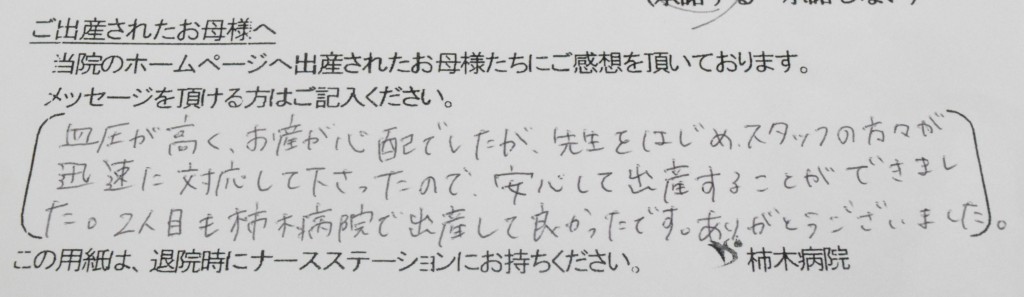 (承諾する　承諾しない)
ご出産されたお母様へ
当院のホームページへ出産されたお母様たちにご感想を頂いております。
メッセージを頂ける方はご記入ください。
血圧が高く、お産が心配でしたが、先生をはじめ、スタッフの方々が
迅速に対応して下さったので、安心して出産することができまし
た。2人目も柿木病院で出産して良かったです。ありがとうございました。
この用紙は、退院時にナースステーションにお持ちください。
柿木病院